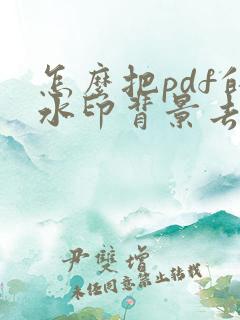 怎麼把pdf的
水印背景去
尹雙增
未经同意禁止转载